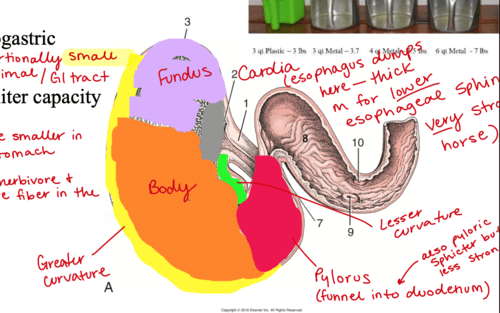 ogastric
rtionally small
nimal / GI tract
liter capacity
e smaller in
tomach
herbivore +
e fiber in the
3 qt Plastic – 3 lbs 3 qt Metal – 3.7 6 qt Metal - 7 lbs
3
Fundus
2
Cardia
(esophagus dumps
here – thick
m for lower
esophageal sphin
very stro
horse)
1
8
10
9
7
Body
Lesser
curvature
Greater
curvature
A
Pylorus
(funnel into duodenum)
also pyloric
sphicter but
less stron
Copyright © 2016 Elsevier Inc. All Rights Reserved.